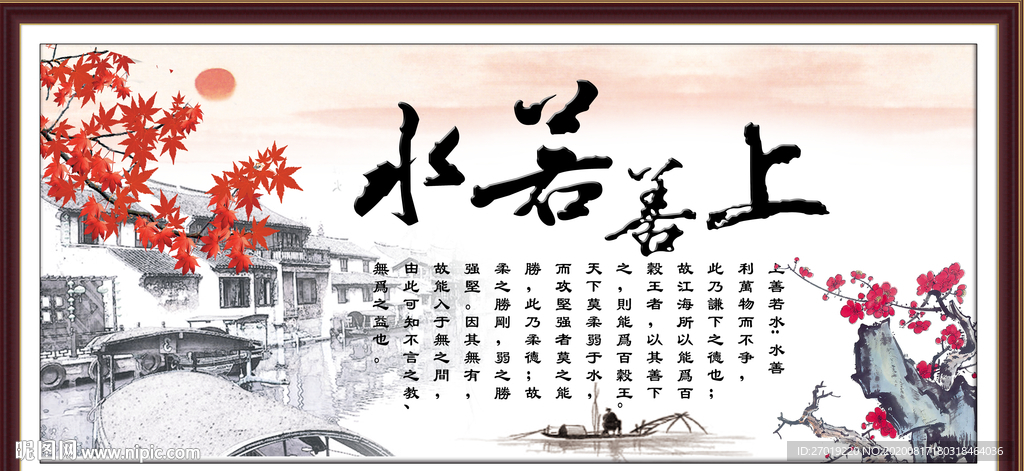 上善若水
上善若水:水善
利萬物而不爭，
此乃謙下之德也；
故江海所以能爲百
穀王者，以其善下
之，則能爲百穀王。
天下莫柔弱于水，
而攻堅强者莫之能
勝，此乃柔德；故
柔之勝剛，弱之勝
强堅。因其無有，
故能入于無之間，
由此可知不言之教、
無爲之益也。
昵图网 www.nipic.com
ID:27019220 NO:20200817180318464036